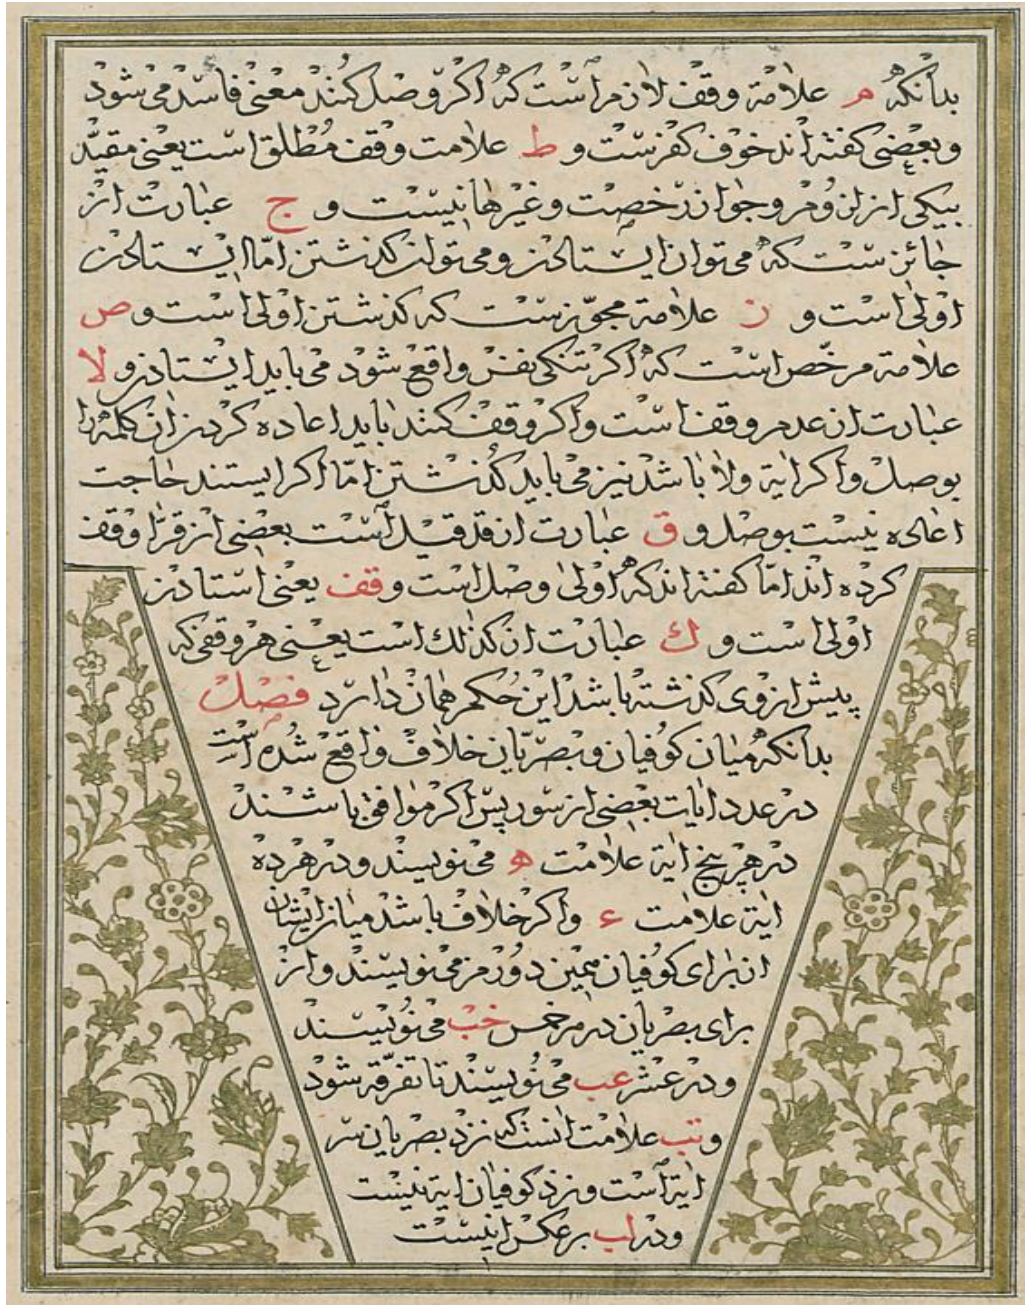 بدانکه م علامة وقف لازم است که اکر وصل کنند معنی فاسد می شود
و بعضی کفته اند خوف کفرست و ط علامت وقف مطلق است یعنی مقید
بیکی از لزوم و جواز رخصت و غیرها نیست و ج عبارت از
جائزست که می توان ایستادن و می توان کذشتن اما ایستادن
اولی است و ز علامة مجوزست که کذشتن اولی است و ص
علامة مرخص است که اکر تنکی نفس واقع شود می باید ایستادن و لا
عبارت از عدم وقف است و اکر وقف کنند باید اعاده کردن ان کلمه را
بوصل و اکر ایة ولا باشد نیز می باید کذشتن اما اکر ایستند حاجت
اعاده نیست بوصل و ق عبارت از قد قیل است بعضی از قرا وقف
کرده اند اما کفته اند که اولی وصل است و قف یعنی استادن
اولی است و ك عبارت از کذلك است یعنی هر وقفی که
پیش از وی کذشته باشد این حکم همان دارد فصل
بدانکه میان کوفیان و بصریان خلاف واقع شده است
در عدد ایات بعضی از سور پس اکر موافق باشند
در هر پنج ایة علامت ه می نویسند و در هر ده
ایة علامت ء و اکر خلاف باشد میان ایشان
از برای کوفیان همین دو رمز می نویسند و از
برای بصریان در خمس خب می نویسند
و در عشر عب می نویسند تا تفرقه شود
و تب علامت انست که نزد بصریان سر
ایة است و نزد کوفیان ایة نیست
و در لب بر عکس اینست